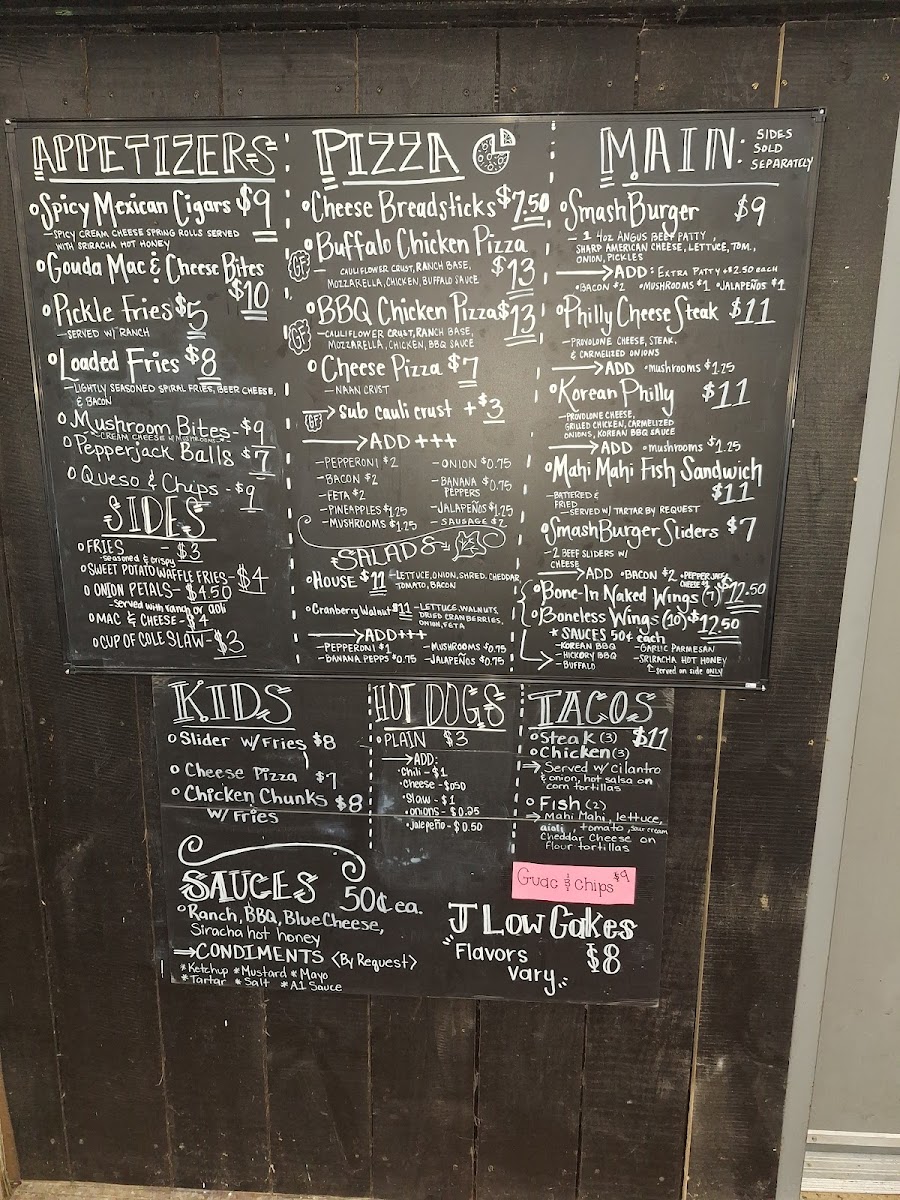 APPETIZERS
Spicy Mexican Cigars $9
—SPICY CREAM CHEESE SPRING ROLLS SERVED
WITH SRIRACHA HOT HONEY
Gouda Mac & Cheese Bites
$10
Pickle Fries $5
—SERVED W/ RANCH
Loaded Fries $8
—LIGHTLY SEASONED SPIRAL FRIES, BEER CHEESE,
& BACON
Mushroom Bites - $9
Pepperjack Balls $7
Queso & Chips - $9
SIDES
FRIES - $3
-seasoned & crispy
SWEET POTATO WAFFLE FRIES - $4
ONION PETALS - $4.50
-served with ranch or aoli
MAC & CHEESE - $4
CUP OF COLE SLAW - $3
PIZZA
Cheese Breadsticks $7.50
Buffalo Chicken Pizza
GF
CAULIFLOWER CRUST, RANCH BASE, $13
MOZZARELLA, CHICKEN, BUFFALO SAUCE
BBQ Chicken Pizza $13
GF
—CAULIFLOWER CRUST, RANCH BASE,
MOZZARELLA, CHICKEN, BBQ SAUCE
Cheese Pizza $7
—NAAN CRUST
GF Sub cauli crust + $3
→ADD +++
—PEPPERONI $2
—BACON $2
—FETA $2
—PINEAPPLES $1.25
—MUSHROOMS $1.25
—ONION $0.75
—BANANA PEPPERS $0.75
—JALAPEÑOS $1.25
—SAUSAGE $2
SALADS
HOUSE $11 —LETTUCE, ONION, SHRED. CHEDDAR,
TOMATO, BACON
Cranberry Walnut $11 —LETTUCE, WALNUTS,
DRIED CRANBERRIES,
ONION, FETA
→ADD+++
—PEPPERONI $1 —MUSHROOMS $0.75
—BANANA PEPPS $0.75 —JALAPEÑOS $0.75
MAIN: SIDES
SOLD
SEPARATELY
SmashBurger $9
— 1 4oz ANGUS BEEF PATTY,
SHARP AMERICAN CHEESE, LETTUCE, TOM.,
ONION, PICKLES
→ADD: EXTRA PATTY +$2.50 each
•BACON $2 •MUSHROOMS $1 •JALAPEÑOS $1
Philly Cheese Steak $11
—PROVOLONE CHEESE, STEAK,
& CARMELIZED ONIONS
→ADD •mushrooms $1.25
Korean Philly $11
—PROVOLONE CHEESE,
GRILLED CHICKEN, CARMELIZED
ONIONS, KOREAN BBQ SAUCE
→ADD •mushrooms $1.25
Mahi Mahi Fish Sandwich
$11
—BATTERED &
FRIED
—SERVED W/ TARTAR BY REQUEST
SmashBurger Sliders $7
—2 BEEF SLIDERS W/
CHEESE
→ADD •BACON $2 •PEPPERJACK
CHEESE
Bone-In Naked Wings (7) $12.50
Boneless Wings (10) $12.50
* SAUCES 50¢ each
—KOREAN BBQ —GARLIC PARMESAN
—HICKORY BBQ —SRIRACHA HOT HONEY
—BUFFALO served on side ONLY
KIDS
Slider w/ Fries $8
Cheese Pizza $7
Chicken Chunks $8
w/ Fries
HOT DOGS
PLAIN $3
→ADD:
•Chili - $1
•Cheese - $0.50
•Slaw - $1
•onions - $0.25
•jalepeño - $0.50
TACOS
Steak (3) $11
Chicken (3)
⇒ Served w/ cilantro
& onion, hot salsa on
corn tortillas
Fish (2)
⇒ Mahi Mahi, lettuce,
aioli, tomato, sour cream
Cheddar Cheese on
Flour tortillas
Guac & chips $9
SAUCES 50¢ ea.
Ranch, BBQ, Blue Cheese,
Siracha hot honey
⇒CONDIMENTS <By Request>
*Ketchup *Mustard *Mayo
*Tartar *Salt *A1 Sauce
J Low Cakes
"Flavors $8
Vary"